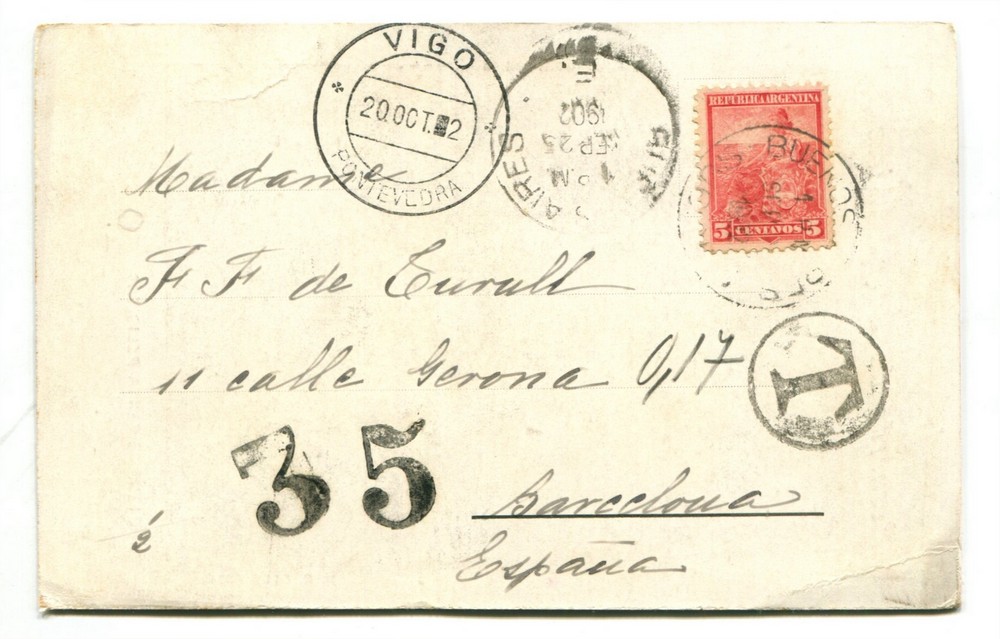 VIGO
20.OCT. 2
PONTEVEDRA
AIRES
1902
SEP 25
REPUBLICA ARGENTINA
5 CENTAVOS 5
BUENOS
Madame
F F de Turull
11 calle Gerona 0,17
T
35
Barcelona
España
á